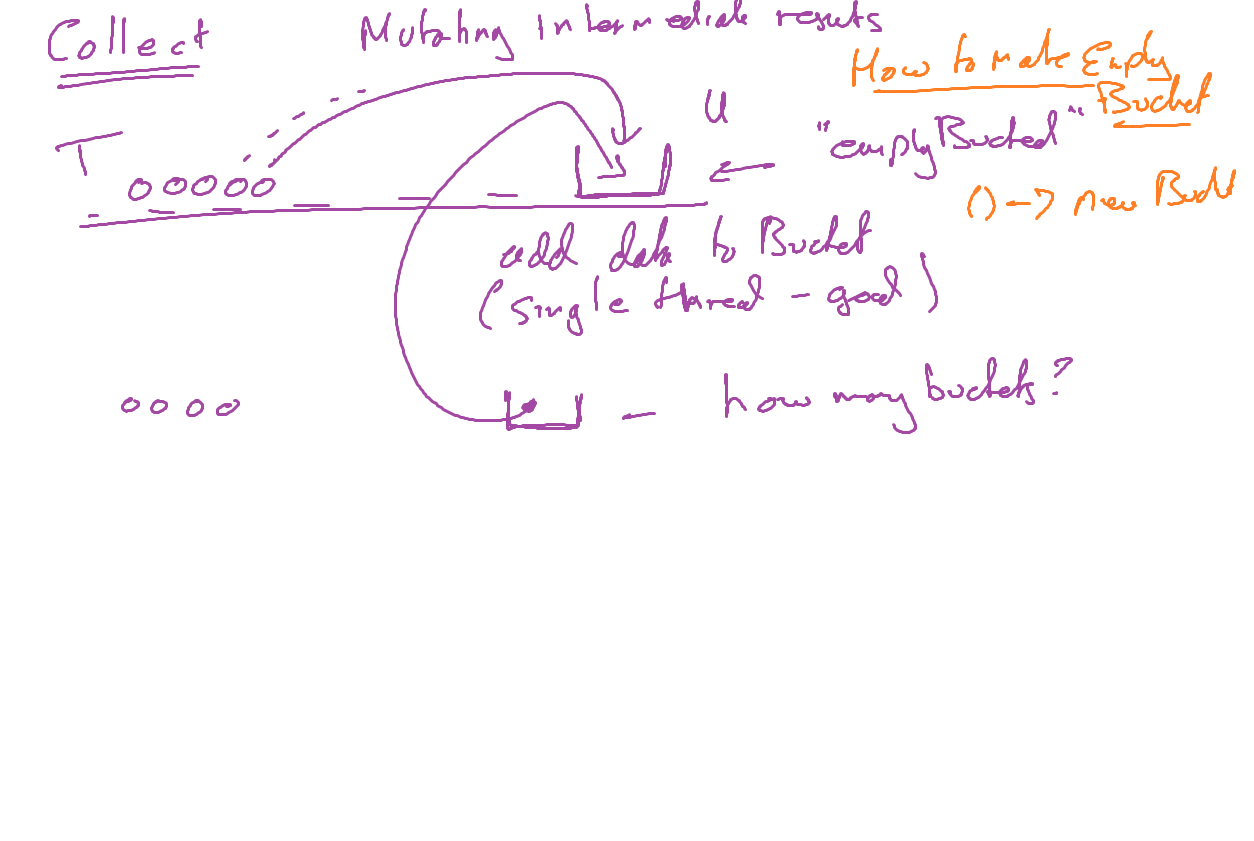 Collect
Mutating intermediate results
How to make Empty
Bucket
T
U
"emptyBucked"
() -> new Buck
add data to Bucket
(single thread - good)
how many buckets?